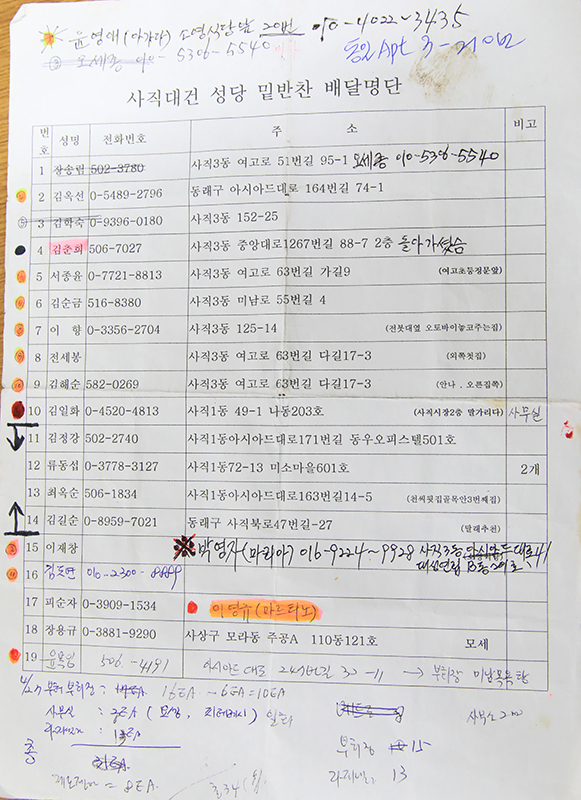 윤영애 (아가다) 소영식당앞 20번 010-4022-3435
오세종 010-5396-5540
동일Apt 3-210번
사직대건 성당 밑반찬 배달명단
번호 성명 전화번호 주 소 비고
1 장송림 502-3780 사직3동 여고로 51번길 95-1 오세종 010-5396-5540
2 김옥선 0-5489-2796 동래구 아시아드대로 164번길 74-1
3 김학숙 0-9396-0180 사직3동 152-25
4 김춘희 506-7027 사직3동 중앙대로1267번길 88-7 2층 돌아가셨슴
5 서종윤 0-7721-8813 사직3동 여고로 63번길 가길9 (여고초등정문앞)
6 김순금 516-8380 사직3동 미남로 55번길 4
7 이 향 0-3356-2704 사직3동 125-14 (전봇대옆 오토바이놓고주는집)
8 전세봉 사직3동 여고로 63번길 다길17-3 (외쪽첫집)
9 김해순 582-0269 사직3동 여고로 63번길 다길17-3 (안나 . 오른집쪽)
10 김일화 0-4520-4813 사직1동 49-1 나동203호 (사직시장2층 딸가리다) 사무실
11 김정강 502-2740 사직1동아시아드대로171번길 동우오피스텔501호
12 류동섭 0-3778-3127 사직1동72-13 미소마을601호 2개
13 최옥순 506-1834 사직1동아시아드대로163번길14-5 (천씨핏집골목안3번째집)
14 김길순 0-8959-7021 동래구 사직북로47번길-27 (말래추천)
15 이재창 ※박영자(마리아) 016-9224-9928 사직3동 드대로 41
대성연립 B동 201호
16 김도연 016-2300-8889
17 피순자 0-3909-1534 이영규(마르티노)
18 장용규 0-3881-9290 사상구 모라동 주공A 110동121호 모세
19 윤옥림 506-4191 아시아드 대로 245번길 30-11 → 부회장 미남목욕탕
부터 부회장 : 16EA - 6EA = 10EA
사무실 : EA ( ) 사무소 200
총
부회장 15
= 8EA 13